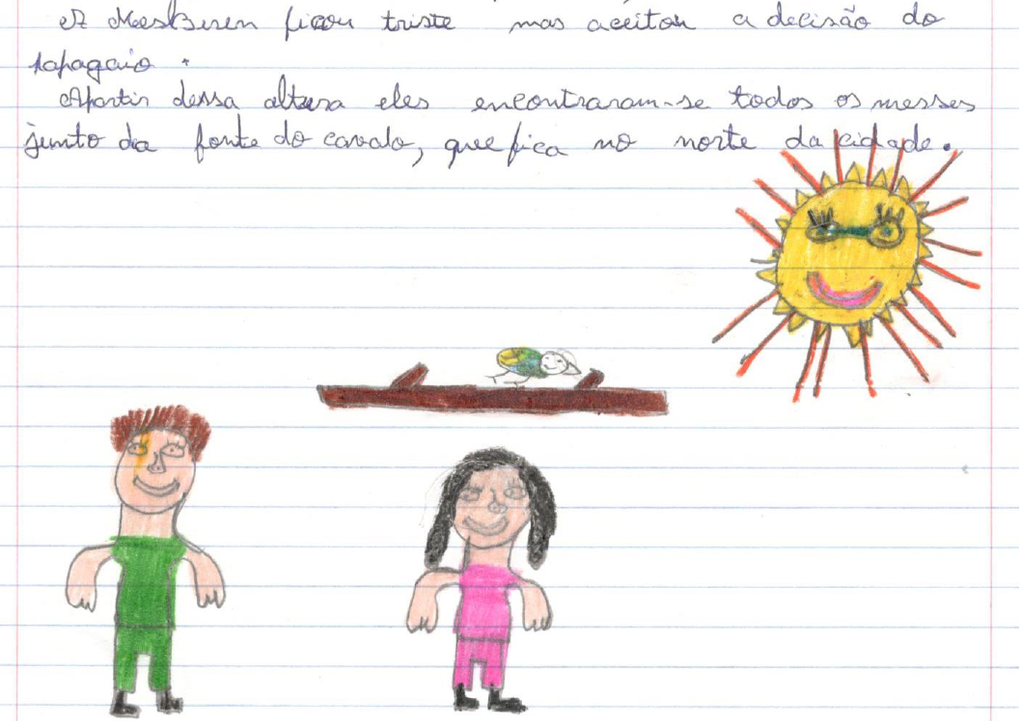 A MasBuren ficou triste mas aceitou a decisão do
papagaio.
Apartir dessa altura eles encontraram-se todos os messes
junto da fonte do cavalo, que fica no norte da cidade.